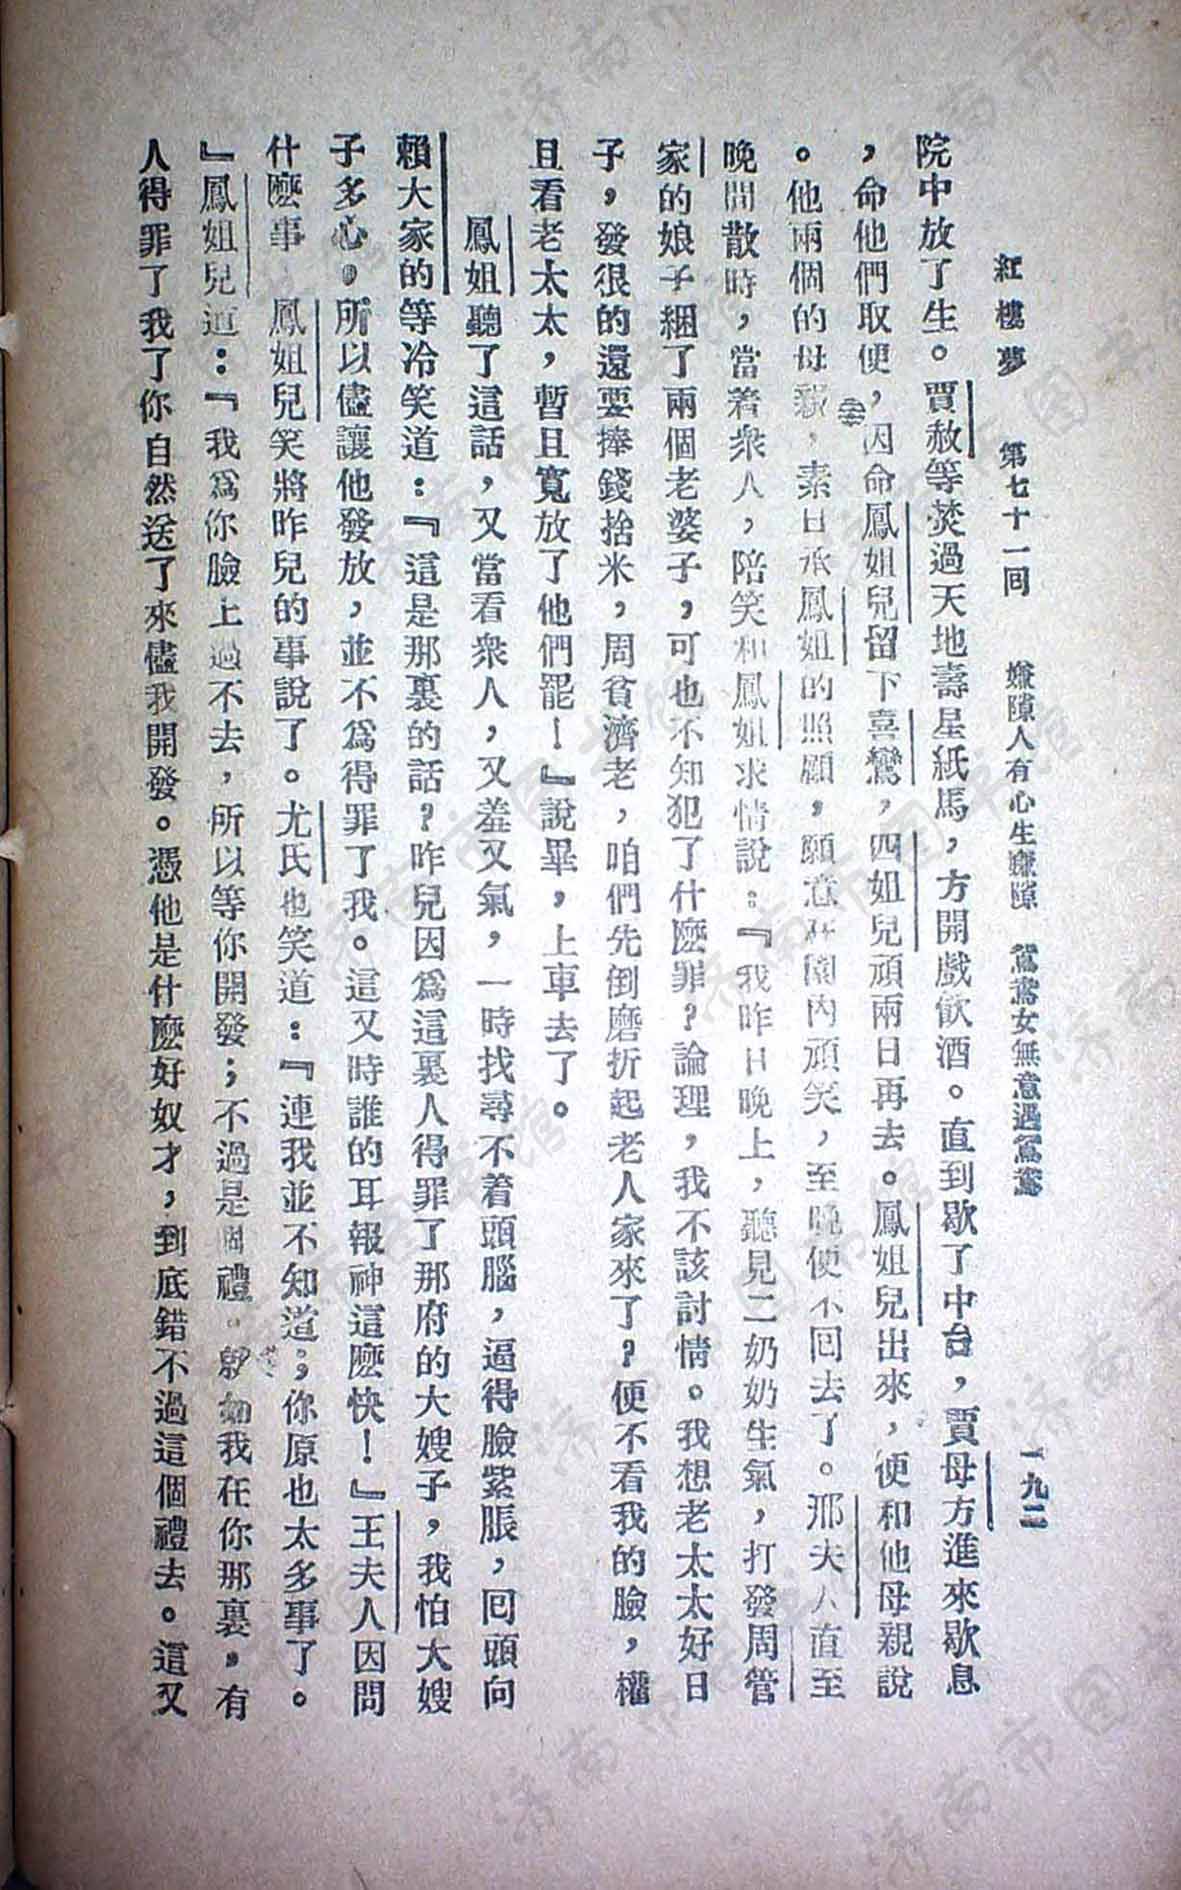 紅樓夢　第七十一回　嫌隙人有心生嫌隙　鴛鴦女無意遇鴛鴦　一九二
院中放了生。賈赦等焚過天地壽星紙馬，方開戲飲酒。直到歇了中台，賈母方進來歇息
，命他們取便，因命鳳姐兒留下喜鸞，四姐兒頑兩日再去。鳳姐兒出來，便和他母親說
。他兩個的母親，素日承鳳姐的照顧，願意在園內頑笑，至晚便不回去了。邢夫人直至
晚間散時，當着衆人，陪笑和鳳姐求情說：『我昨日晚上，聽見二奶奶生氣，打發周管
家的娘子綑了兩個老婆子，可也不知犯了什麼罪？論理，我不該討情。我想老太太好日
子，發很的還要捧錢捨米，周貧濟老，咱們先倒磨折起老人家來了？便不看我的臉，權
且看老太太，暫且寬放了他們罷！』說畢，上車去了。
鳳姐聽了這話，又當看衆人，又羞又氣，一時找尋不着頭腦，逼得臉紫脹，回頭向
賴大家的等冷笑道：『這是那裏的話？昨兒因爲這裏人得罪了那府的大嫂子，我怕大嫂
子多心，所以儘讓他發放，並不爲得罪了我。這又時誰的耳報神這麼快！』王夫人因問
什麼事，鳳姐兒笑將昨兒的事說了。尤氏也笑道：『連我並不知道，你原也太多事了。
』鳳姐兒道：『我爲你臉上過不去，所以等你開發；不過是個禮。就如我在你那裏，有
人得罪了我了你自然送了來儘我開發。憑他是什麼好奴才，到底錯不過這個禮去。這又
济南市图书馆